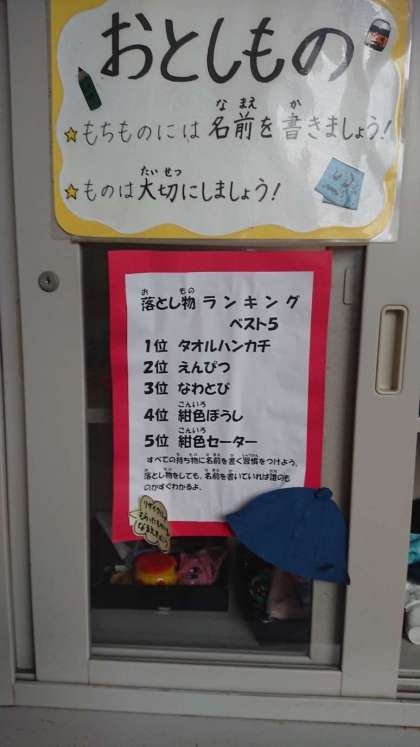 おとしもの
もちものには名前を書きましょう!
ものは大切にしましょう!
落とし物 ランキング
ベスト5
1位 タオルハンカチ
2位 えんぴつ
3位 なわとび
4位 紺色ぼうし
5位 紺色セーター
すべての持ち物に名前を書く習慣をつけよう。
落とし物をしても、名前を書いていれば誰のも
のかすぐわかるよ。